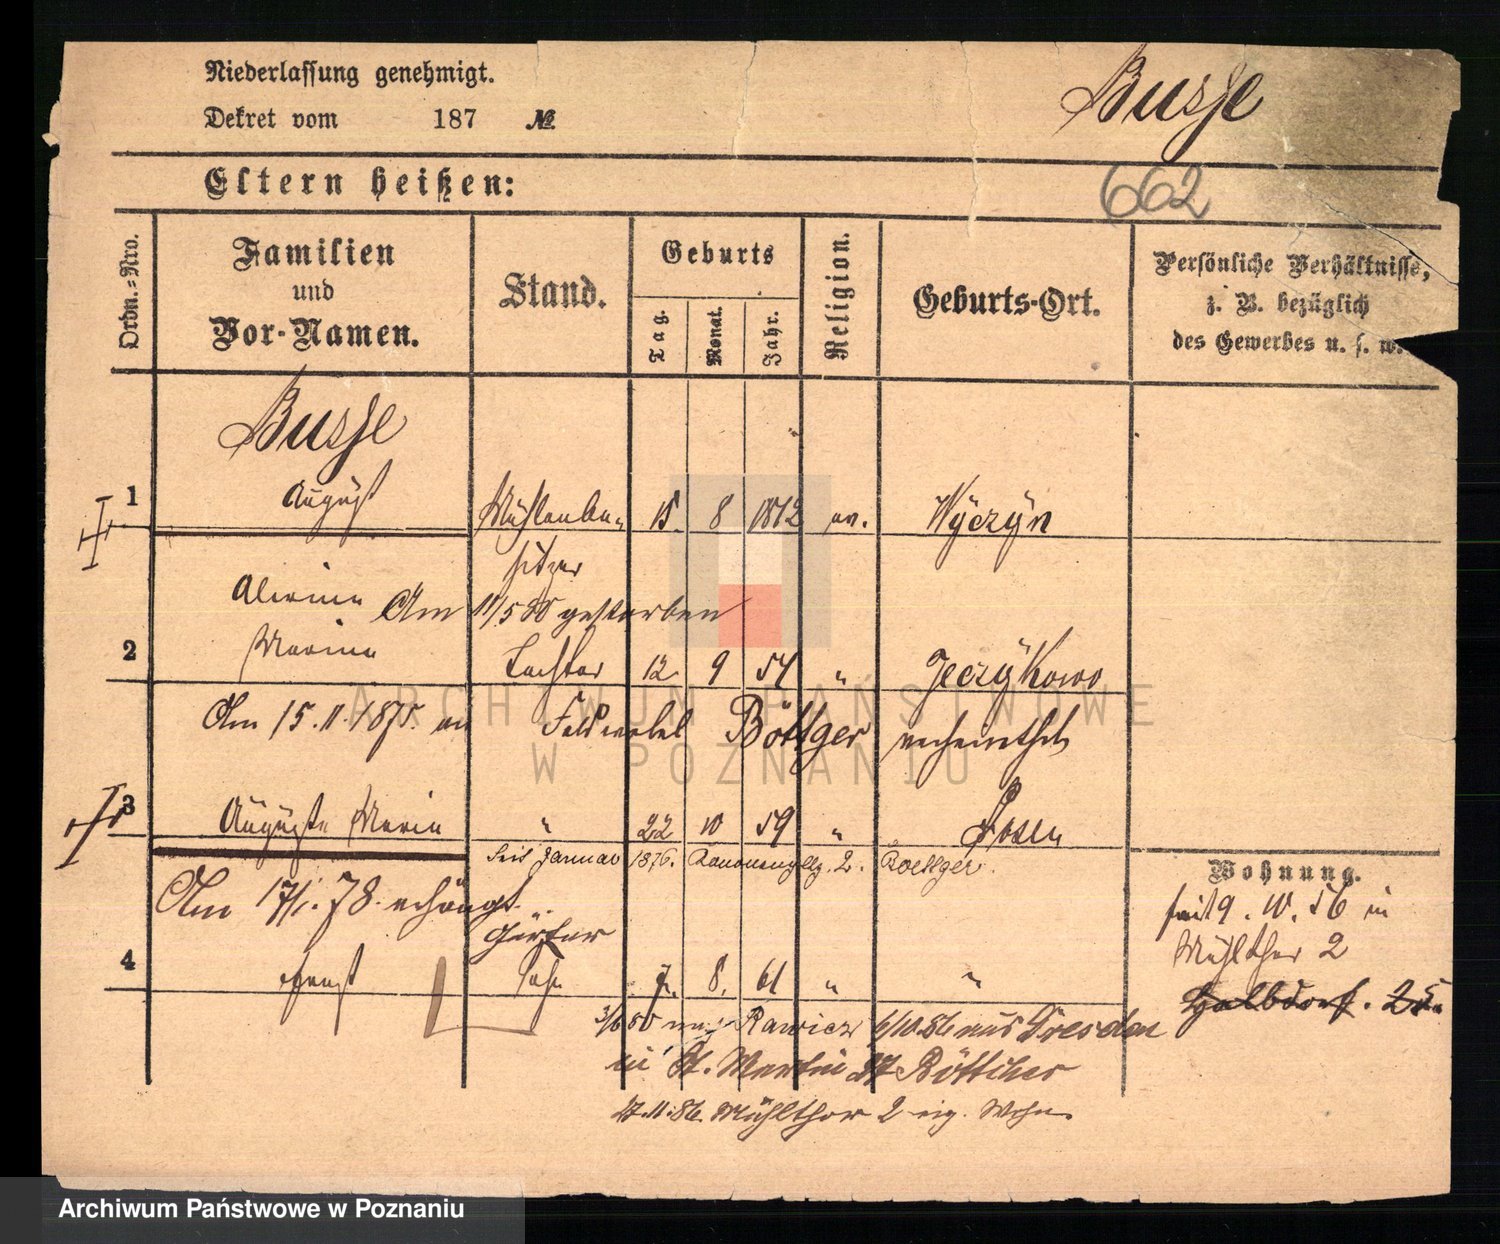 Niederlassung genehmigt.
Dekret vom 187 №
Busse
662
Eltern heißen:
Ordn.-Nro.
Familien
und
Vor-Namen.
Stand.
Geburts
Tag.
Monat.
Jahr.
Religion.
Geburts-Ort.
Persönliche Verhältnisse,
z. B. bezüglich
des Gewerbes u. s. w.
Busse
1 August 15. 8 1812 ev. Wyczyn
sitzer
Am 11/5 80 gestorben
2 Marina Tochter 12 9 54 " Jerzykowo
Am 15.11.1875. an Feldwebel Böttger verheirathet
3 Auguste Maria " 22 10 59 " Posen
Seit Januar 1876. 2. Roettger.
Am 17/1.78. erhängt.
Wohnung.
seit 9. 10. 56 in
Mühlthor 2
Halbdorf. 25.
4 Ernst Sohn 7. 8. 61 " "
3/6 80 Rawicz 6/10.86 aus Dresden
in St. Martin 27 Böttcher
27.11.86. Mühlthor 2 eig. Wohn.
ARCHIWUM PAŃSTWOWE
W POZNANIU
Archiwum Państwowe w Poznaniu